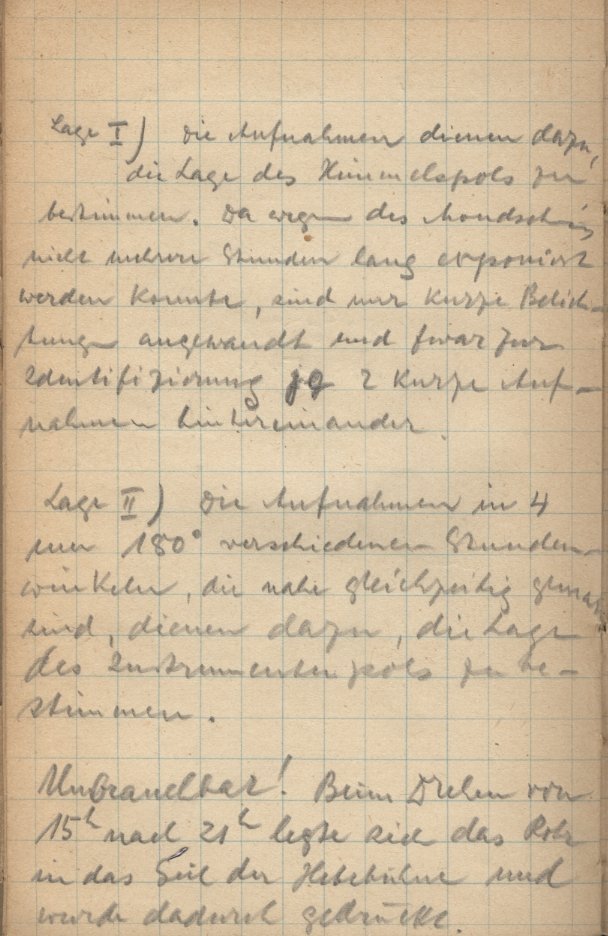 Lage I) Die Aufnahmen dienen dazu,
die Lage des Himmelspols zu
bestimmen. Da wegen des Mondscheins
nicht mehrere Stunden lang exponiert
werden konnte, sind nur kurze Belich-
tungen angewandt und zwar zur
Identifizierung je 2 kurze Auf-
nahmen hintereinander.
Lage II) Die Aufnahmen in 4
um 180° verschiedenen Stunden-
winkeln, die nahe gleichzeitig gemacht
sind, dienen dazu, die Lage
des Instrumentenpols zu be-
stimmen.
Unbrauchbar! Beim Drehen von
15h nach 21h legte sich das Rohr
in das Seil der Hebebühne und
wurde dadurch gedrückt.